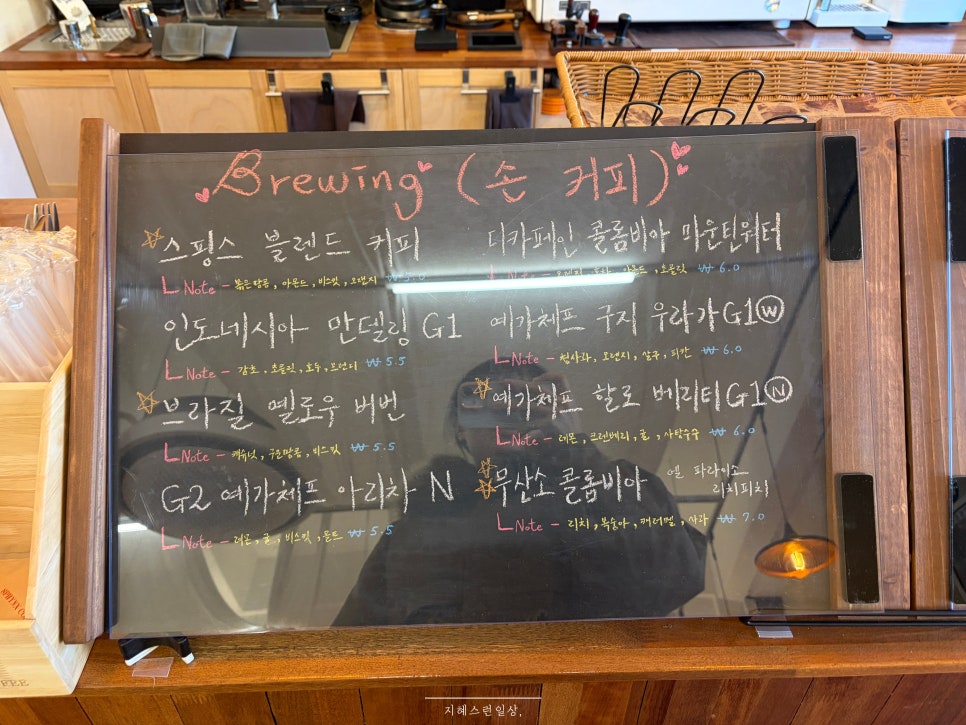 Brewing (손 커피)
스핑스 블렌드 커피
Note - 볶은땅콩, 아몬드, 비스킷, 오렌지 ₩5.0
인도네시아 만델링 G1
Note - 감초, 초콜릿, 호두, 브랜디 ₩5.5
브라질 옐로우 버번
Note - 캐슈넛, 구운땅콩, 비스킷 ₩5.5
G2 예가체프 아리차 N
Note - 레몬, 귤, 비스킷, 몰트 ₩5.5
디카페인 콜롬비아 마운틴워터
Note - 아몬드, 초콜릿 ₩6.0
예가체프 구지 우라가 G1 Ⓦ
Note - 청사과, 오렌지, 살구, 피칸 ₩6.0
예가체프 할로 베리티 G1 Ⓝ
Note - 레몬, 크랜베리, 귤, 사탕수수 ₩6.0
무산소 콜롬비아 엘 파라이소
리치피치
Note - 리치, 복숭아, 캐러멜, 사과 ₩7.0
지혜스런일상,